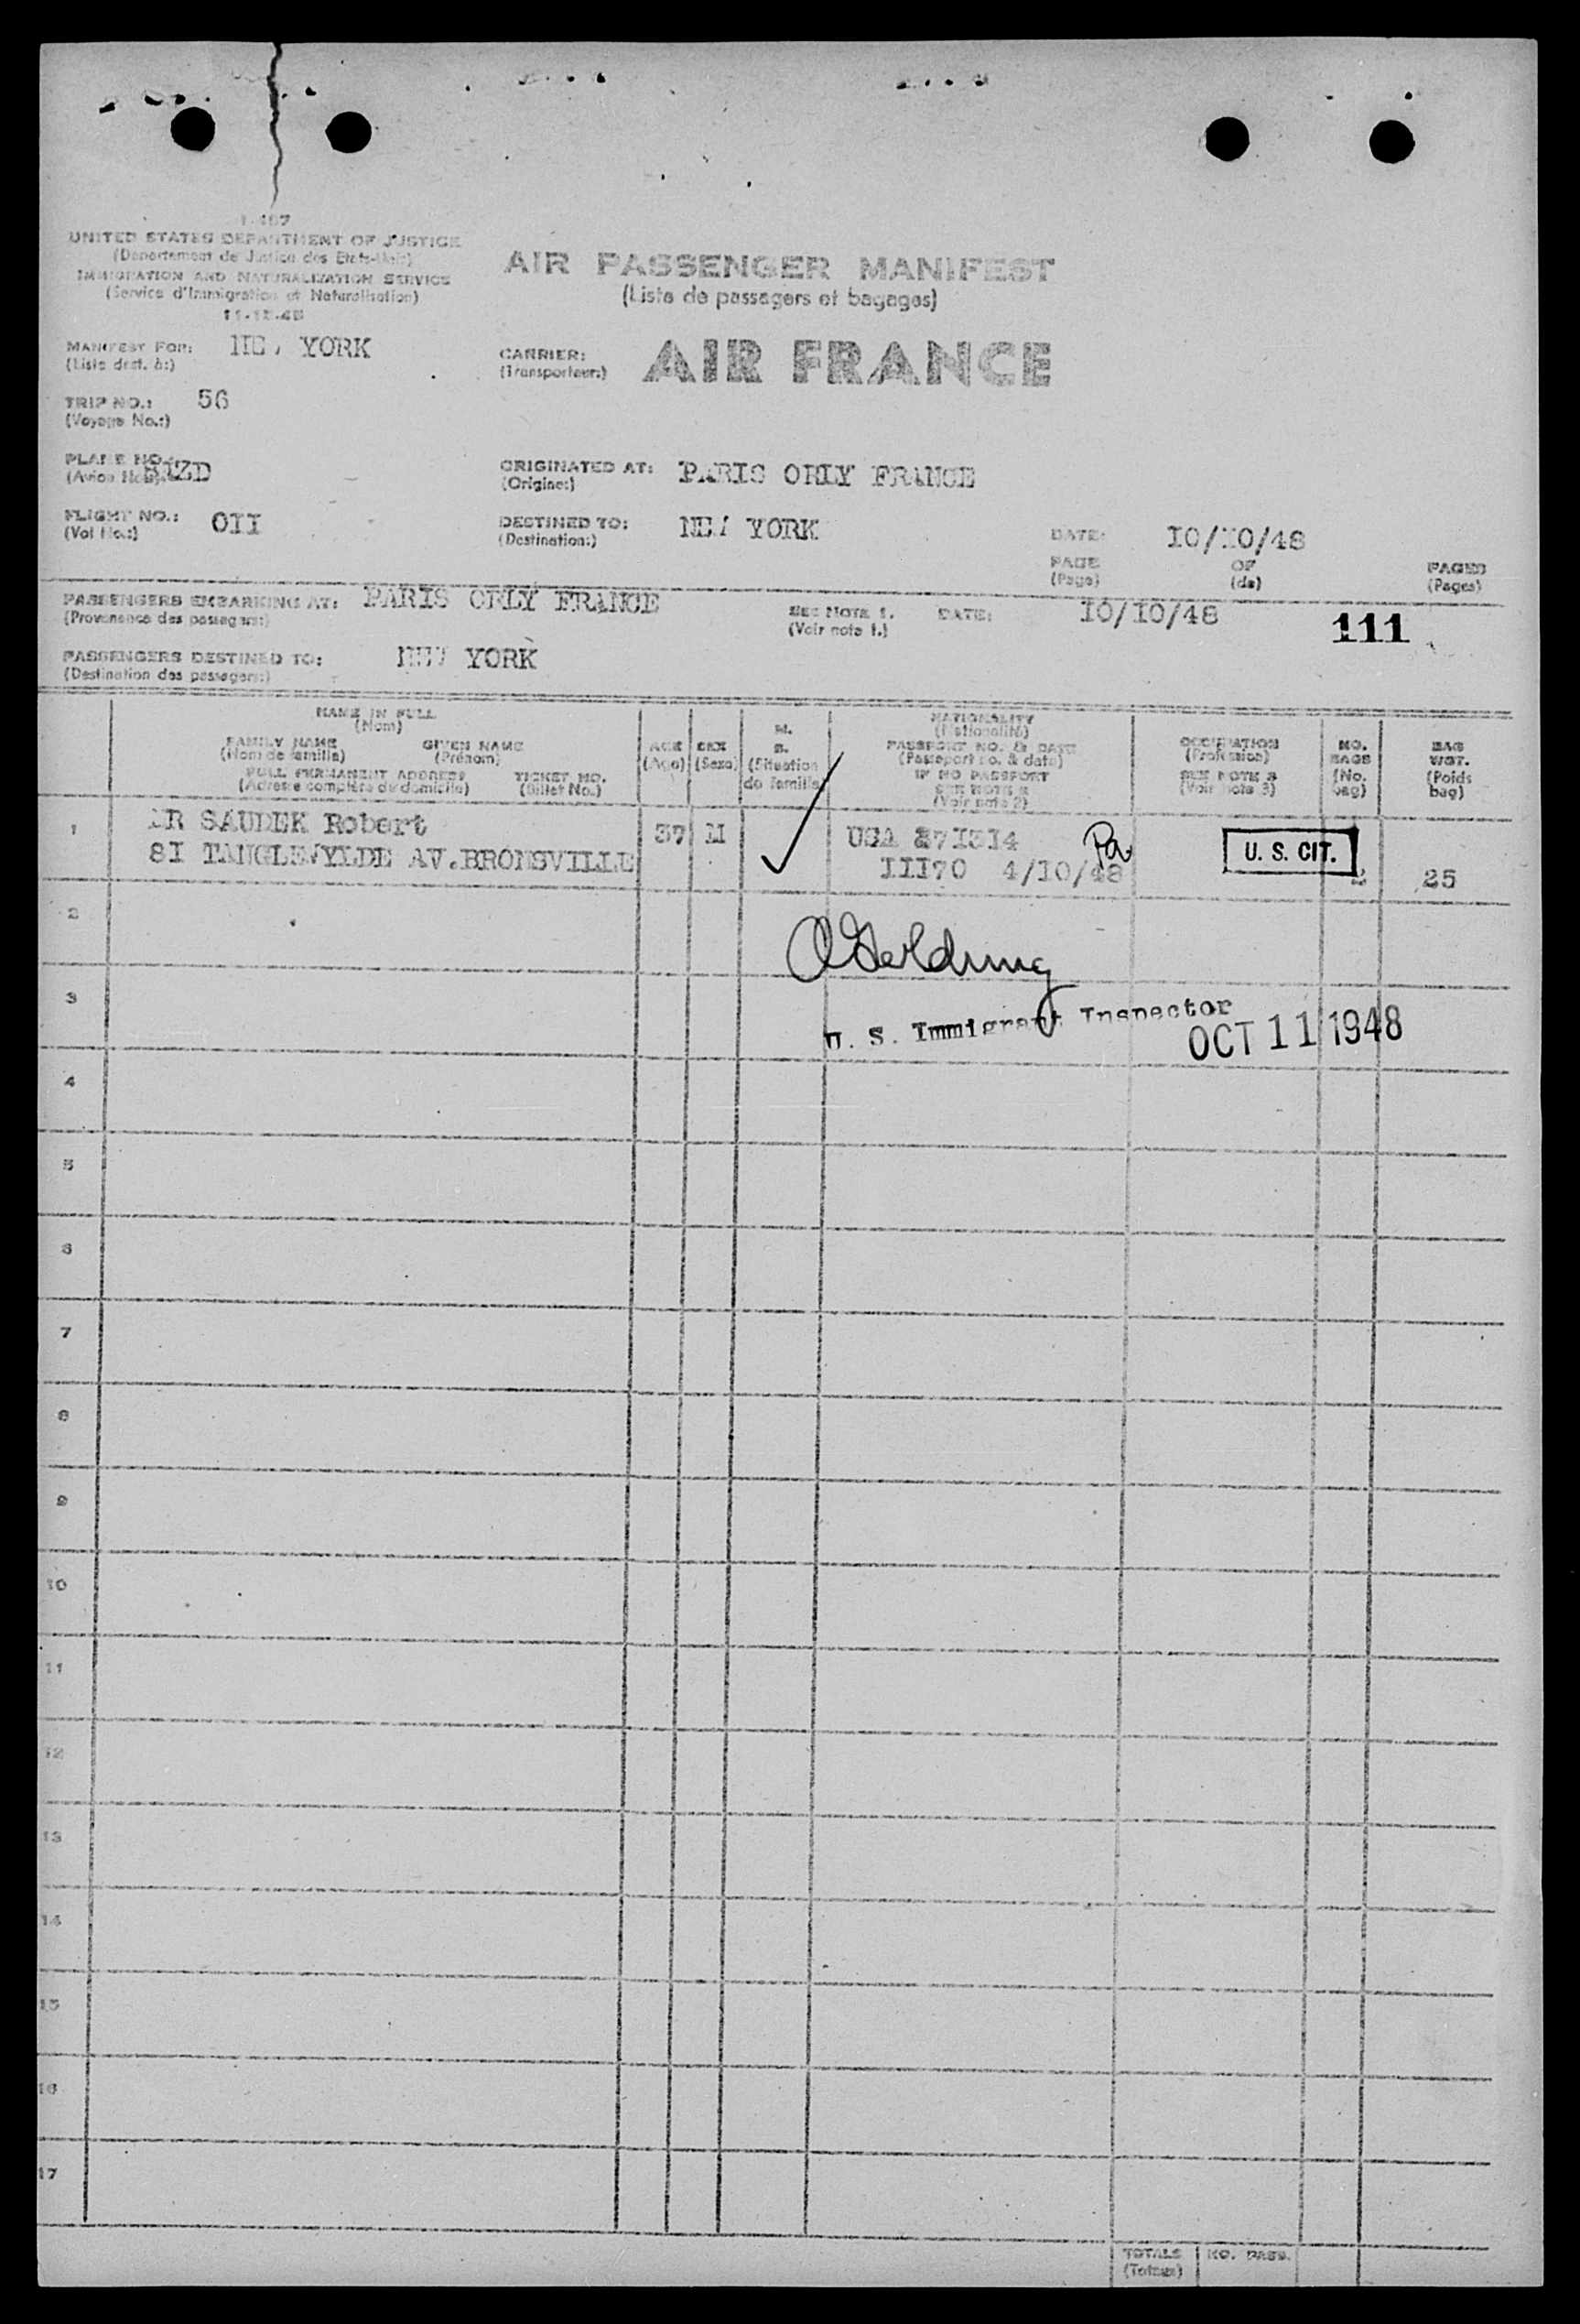 I-467
UNITED STATES DEPARTMENT OF JUSTICE
(Departement de Justice des Etats-Unis)
IMMIGRATION AND NATURALIZATION SERVICE
(Service d'Immigration et Naturalisation)
11-12-48
AIR PASSENGER MANIFEST
(Liste de passagers et bagages)
MANIFEST FOR: NEW YORK
(Liste dest. à:)
CARRIER: AIR FRANCE
(Transporteur:)
TRIP NO.: 56
(Voyage No.:)
PLANE NO.:
(Avion No.:)
ORIGINATED AT: PARIS ORLY FRANCE
(Origine:)
FLIGHT NO.: OII
(Vol No.:)
DESTINED TO: NEW YORK
(Destination:)
DATE: IO/IO/48
PAGE OF PAGES
(Page) (de) (Pages)
PASSENGERS EMBARKING AT: PARIS ORLY FRANCE
(Provenance des passagers:)
SEE NOTE 1. DATE: IO/IO/48
(Voir note 1.)
111
PASSENGERS DESTINED TO: NEW YORK
(Destination des passagers:)
NAME IN FULL
(Nom)
FAMILY NAME GIVEN NAME
(Nom de famille) (Prénom)
FULL PERMANENT ADDRESS TICKET NO.
(Adresse complète de domicile) (Billet No.)
AGE
(Age)
SEX
(Sexe)
M.
S.
(Situation
de famille)
NATIONALITY
(Nationalité)
PASSPORT NO. & DATE
(Passeport no. & date)
IF NO PASSPORT
SEE NOTE 2
(Voir note 2)
OCCUPATION
(Profession)
SEE NOTE 3
(Voir note 3)
NO.
BAGS
(No.
bag)
BAG
WGT.
(Poids
bag)
1 MR SAUDEK Robert 37 M USA 271314
8I TANGLEWYLDE AV.BRONSVILLE III70 4/10/48 Pa U. S. CIT. 25
2
3
U. S. Immigrant Inspector
OCT 11 1948
4
5
6
7
8
9
10
11
12
13
14
15
16
17
TOTALS NO. PASS.
(Totaux)